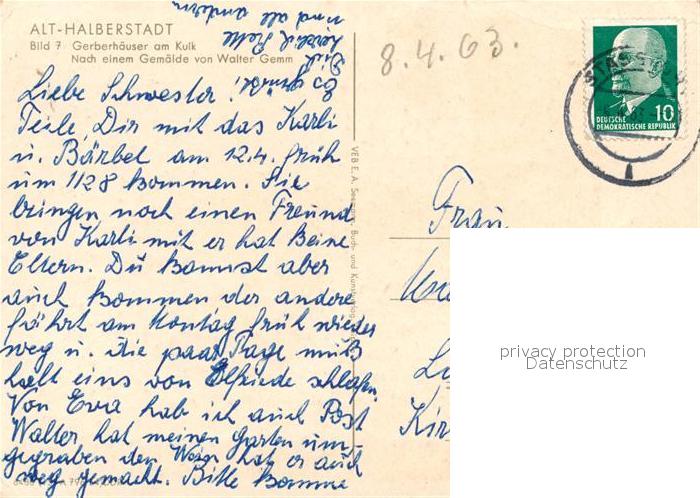 ALT-HALBERSTADT
Bild 7 Gerberhäuser am Kulk
Nach einem Gemälde von Walter Gemm
Liebe Schwester!
Teile Dir mit das Karli
u. Bärbel am 12.4. früh
um 1128 kommen. Sie
bringen noch einen Freund
von Karli mit er hat keine
Eltern. Du kannst aber
auch kommen der andere
fährt am Montag früh wieder
weg u. die paar Tage muß
halt eins von Elfriede schlafen.
Von Eva hab ich auch Post
Walter hat meinen Garten um-
gegraben den hat er auch
weg gemacht. Bitte komme
Es
Dich
herzlich
und all andern
8.4.63.
DEUTSCHE
DEMOKRATISCHE REPUBLIK
10
VEB E. A. Buch- und
Frau
privacy protection
Datenschutz